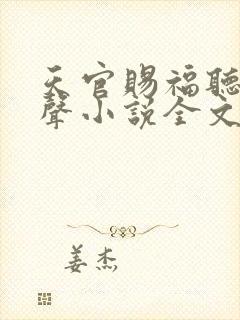 天官賜福聽
聲小說全文
姜杰